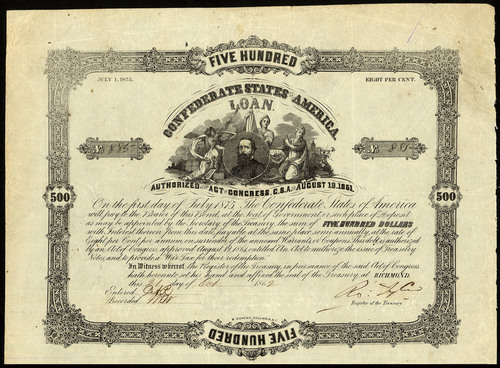 FIVE HUNDRED
JULY 1, 1875. EIGHT PER CENT.
CONFEDERATE STATES AMERICA
LOAN.
AUTHORIZED ACT CONGRESS, C.S.A. AUGUST 19, 1861.
500 500
On the first day of July 1875, The Confederate States of America
will pay to the Bearer of this Bond, at the Seat of Government or such place of Deposit
as may be appointed by the Secretary of the Treasury, the sum of FIVE HUNDRED DOLLARS
with Interest thereon from this date, payable at the same place, semi annually, at the rate of
Eight per Cent per annum, on surrender of the annexed Warrants or Coupons. This debt is authorized
by an Act of Congress, approved August 19, 1861, entitled An Act to authorize the issue of Treasury
Notes, and to provide a War Tax for their redemption.
In Witness whereof, the Register of the Treasury, in pursuance of the said Act of Congress
hath hereunto set his hand and affixed the seal of the Treasury, at RICHMOND,
this day of Oct 1862
Entered
Recorded
Register of the Treasury
FIVE HUNDRED